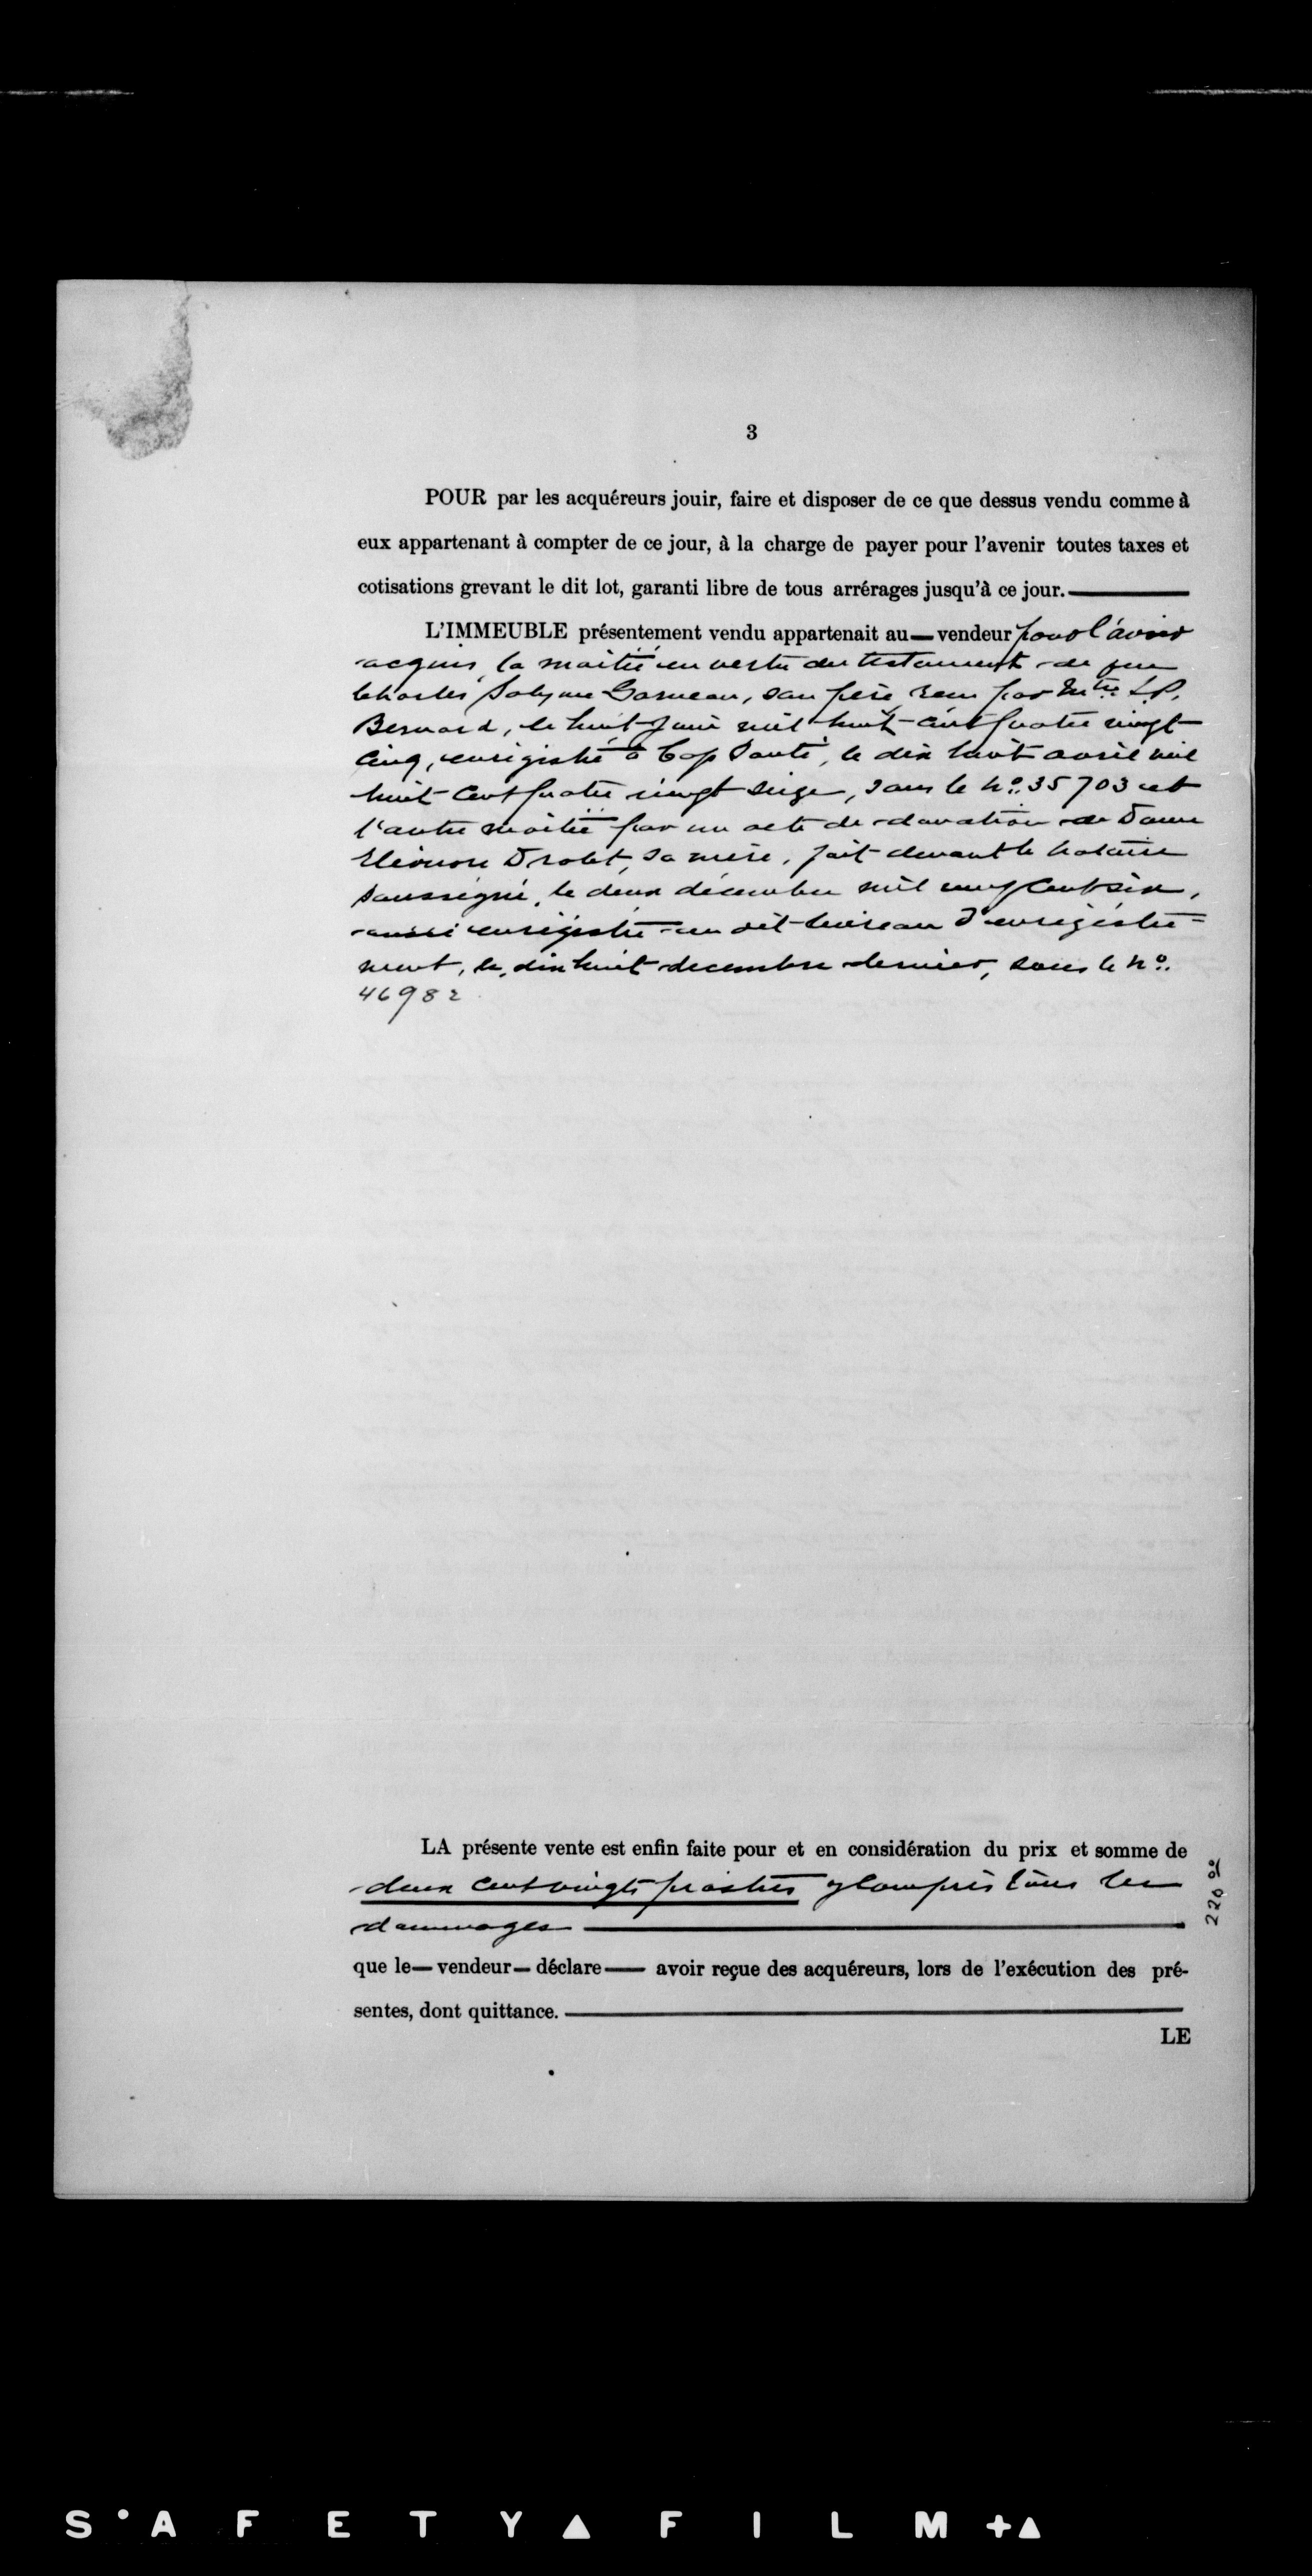 3
POUR par les acquéreurs jouir, faire et disposer de ce que dessus vendu comme à
eux appartenant à compter de ce jour, à la charge de payer pour l'avenir toutes taxes et
cotisations grevant le dit lot, garanti libre de tous arrérages jusqu'à ce jour.
L'IMMEUBLE présentement vendu appartenait au — vendeur pour l'avoir
acquis, la moitié en vertu du testament de feu
Charles Garneau, son père reçu par Mtre L.P.
Bernard, le huit Juin mil huit cent quatre vingt
cinq, enrégistré à Cap Santé, le dix huit avril mil
huit cent quatre vingt seize, sous le No. 35703 et
l'autre moitié par un acte de donation de Dame
Eléonore Drolet, sa mère, fait devant le Notaire
soussigné, le deux décembre mil neuf cent six,
aussi enrégistré au dit bureau d'enrégistre=
ment, le dix huit decembre dernier, sous le No.
46982
LA présente vente est enfin faite pour et en considération du prix et somme de
deux cent vingt piastres y compris tous les
dommages
220
que le — vendeur — déclare — avoir reçue des acquéreurs, lors de l'exécution des pré-
sentes, dont quittance.
LE
S°AFETY▲FILM+▲